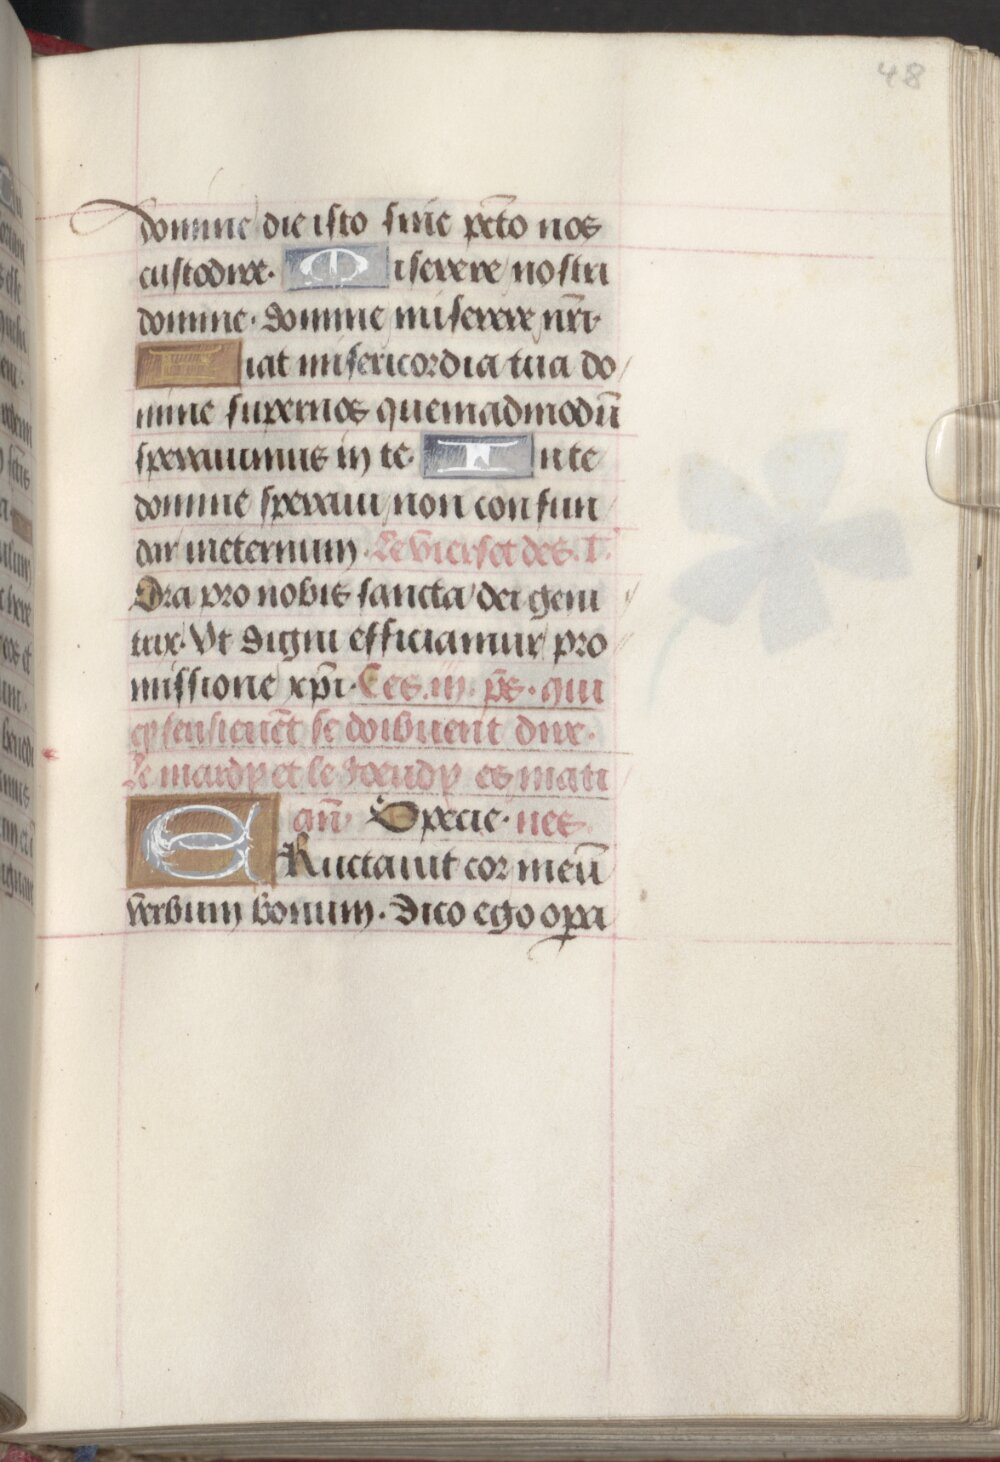 48
domine die isto sine pctō nos
custodire. Miserere nostri
domine. domine miserere nr̄i.
Fiat misericordia tua do
mine super nos quemadmodū
speravimus in te. In te
domine speravi non confun
dar in eternum. Le v̄ierset des. T.
Ora pro nobis sancta dei geni
trix. Vt digni efficiamur pro
missione xp̄i. Ces. iij. ps̄. qui
cy sensieuēt se doibuent dire.
Le mardy et le Joeudy es mati
nes. an̄. Specie.
ERuctauit cor meū
verbum bonum. dico ego opera